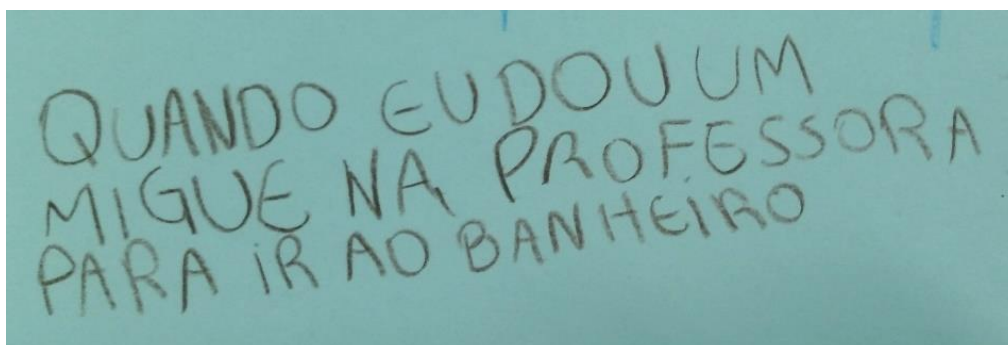 QUANDO EU DOU UM
MIGUE NA PROFESSORA
PARA IR AO BANHEIRO